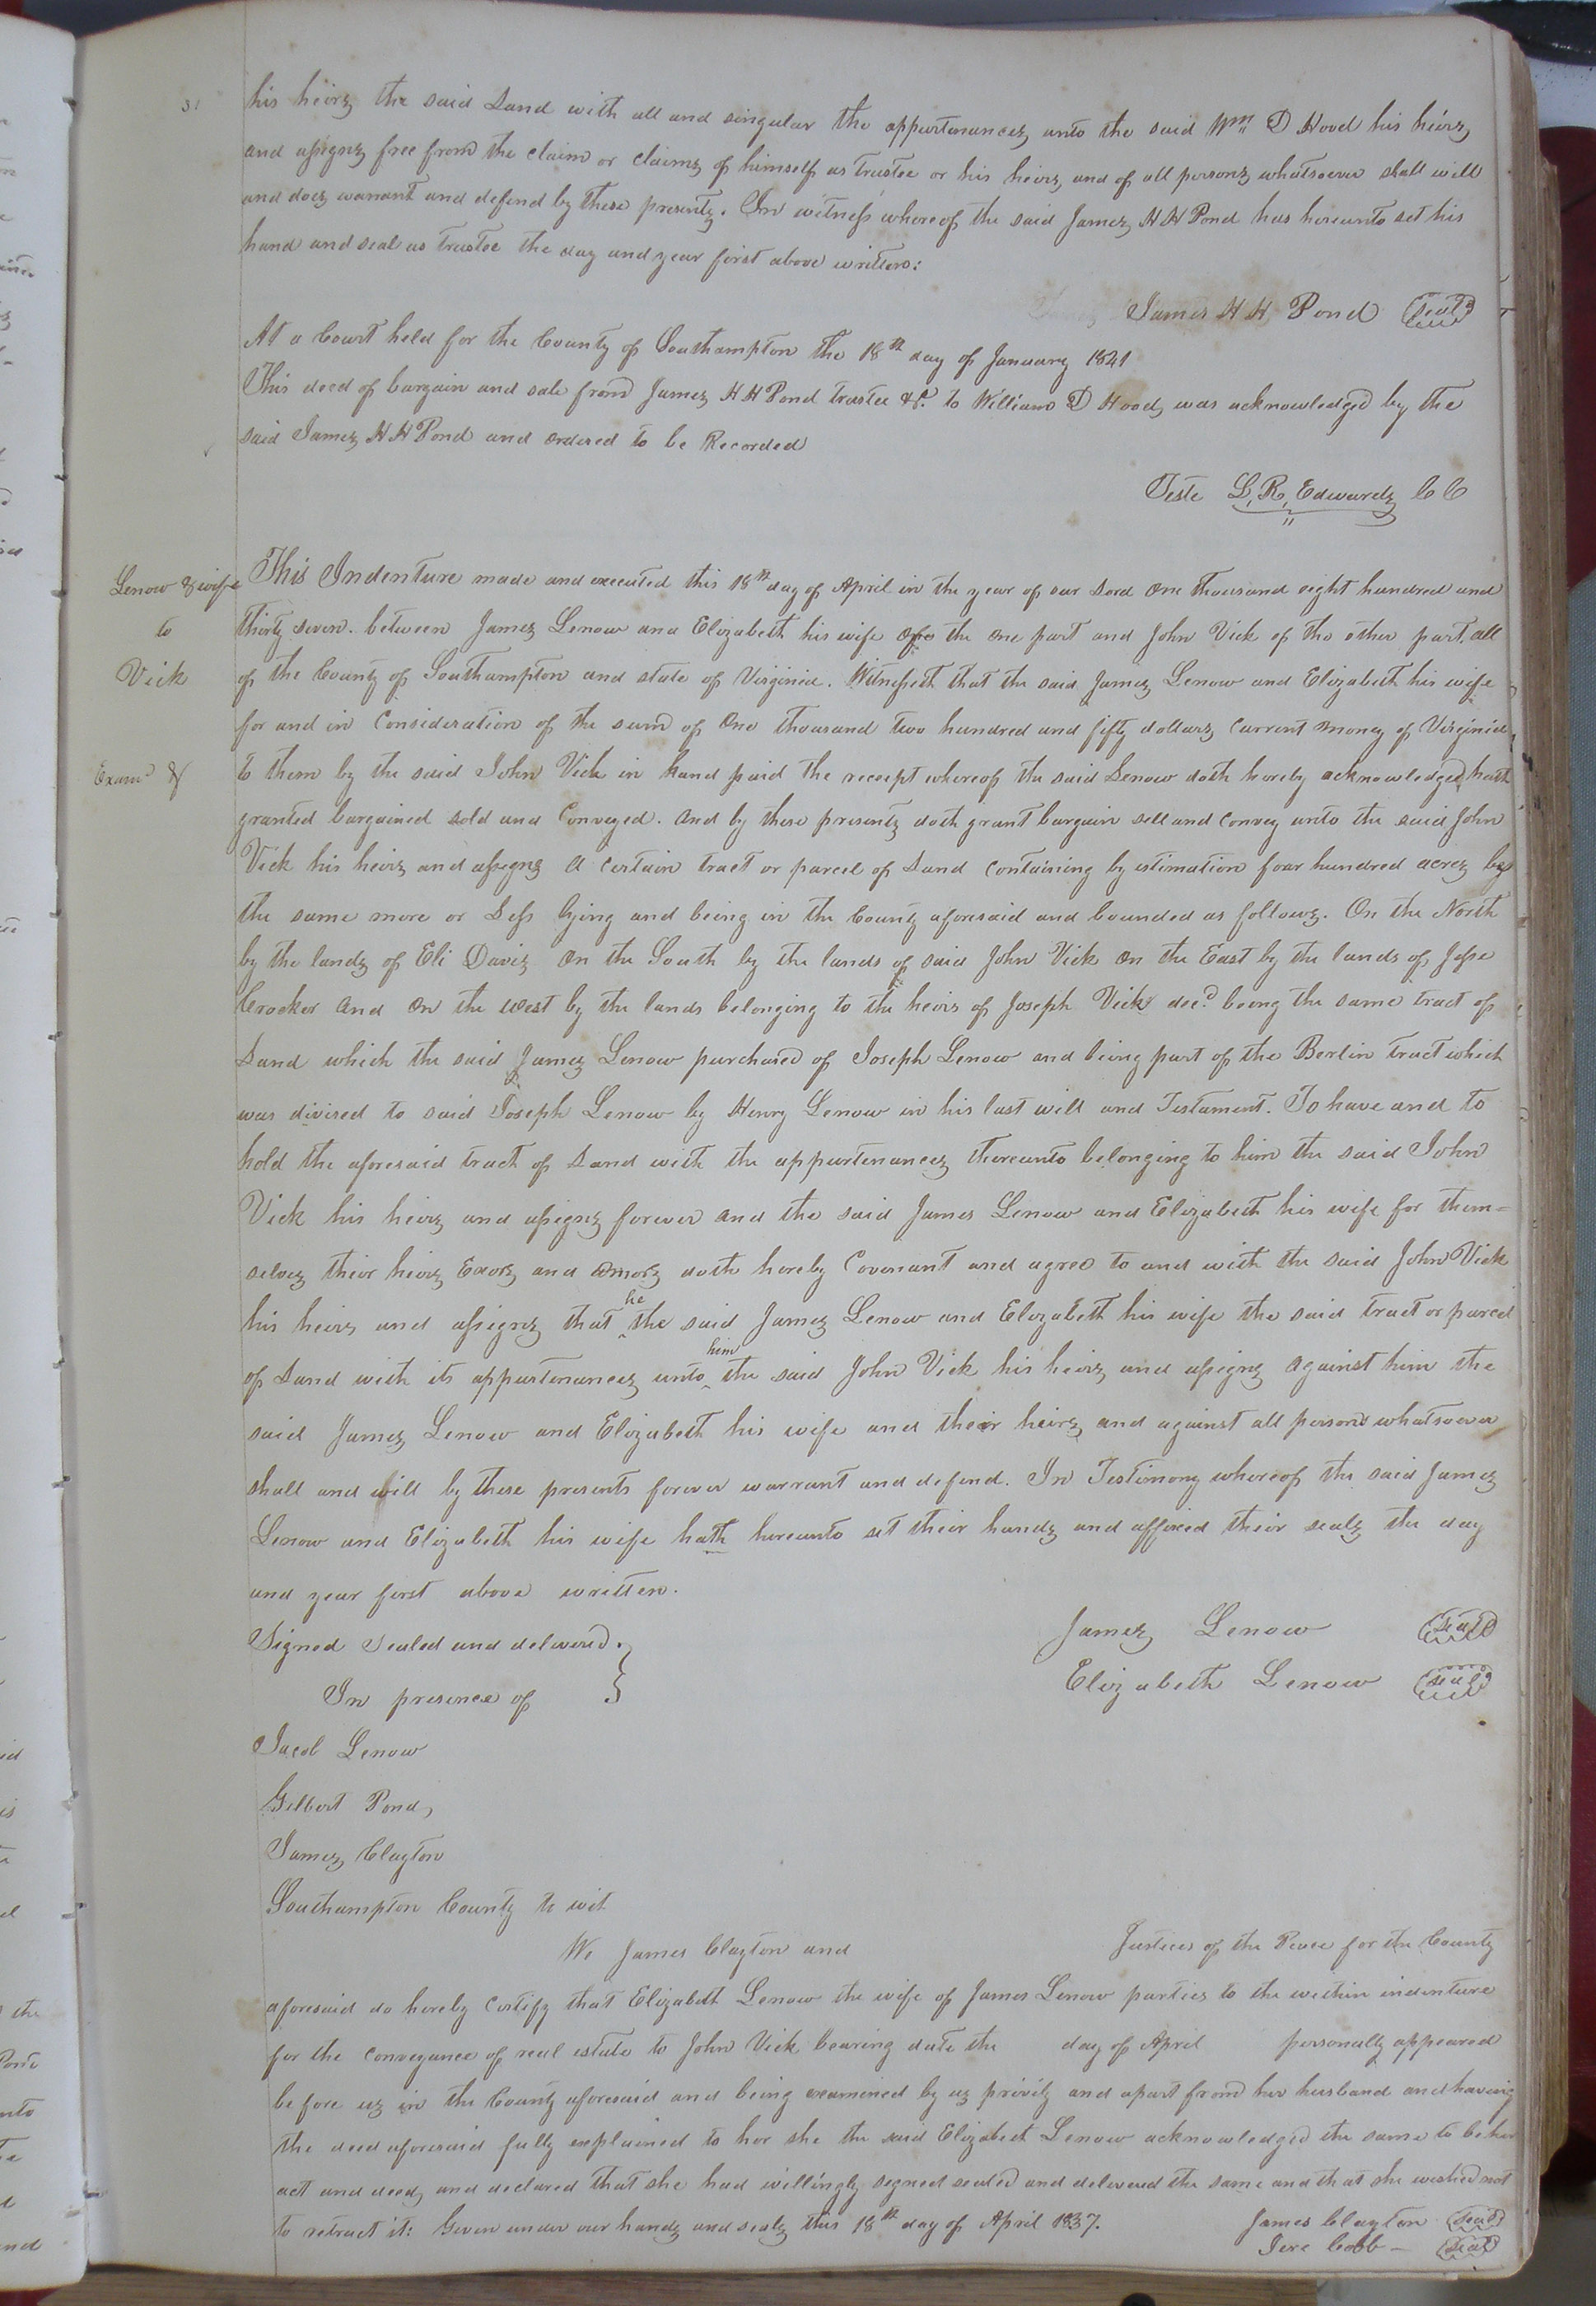 31
his heirs the said Land with all and singular the appurtenances unto the said Wm D Hood his heirs
and assigns free from the claim or claims of himself as trustee or his heirs and of all persons whatsoever shall will
and does warrant and defend by these presents. In witness whereof the said James H H Pond has hereunto set his
hand and seal as trustee the day and year first above written:
James H H Pond (Seal)
At a Court held for the County of Southampton the 18th day of January 1841
This deed of bargain and sale from James H H Pond trustee &c. to William D Hood, was acknowledged by the
said James H H Pond and ordered to be Recorded
Teste L, R, Edwards CC
Lenow & wife
to
Vick
Examd &
This Indenture made and executed this 18th day of April in the year of our Lord One thousand eight hundred and
thirty seven. between James Lenow and Elizabeth his wife of the One part and John Vick of the other part. all
of the County of Southampton and state of Virginia. Witnesseth that the said James Lenow and Elizabeth his wife
for and in Consideration of the sum of One thousand two hundred and fifty dollars Current money of Virginia
to them by the said John Vick in hand paid the receipt whereof the said Lenow doth hereby acknowledged, hath
granted bargained sold and Conveyed. And by these presents doth grant bargain sell and convey unto the said John
Vick his heirs and assigns a certain tract or parcel of Land containing by estimation four hundred acres be
the same more or Less lying and being in the County aforesaid and bounded as follows. On the North
by the lands of Eli Davis On the South by the lands of said John Vick on the East by the lands of Jesse
Crocker and on the west by the lands belonging to the heirs of Joseph Vick decd being the same tract of
Land which the said James Lenow purchased of Joseph Lenow and being part of the Berlin tract which
was divised to said Joseph Lenow by Henry Lenow in his last will and Testament. To have and to
hold the aforesaid tract of Land with the appurtenances thereunto belonging to him the said John
Vick his heirs and assigns forever and the said James Lenow and Elizabeth his wife for them=
selves their heirs Exors and admors doth hereby Covenant and agree to and with the said John Vick
his heirs and assigns that he the said James Lenow and Elizabeth his wife the said tract or parcel
of Land with its appurtenances unto him the said John Vick his heirs and assigns against him the
said James Lenow and Elizabeth his wife and their heirs and against all persons whatsoever
shall and will by these presents forever warrant and defend. In Testimony whereof the said James
Lenow and Elizabeth his wife hath hereunto set their hands and affixed their seals the day
and year first above written.
Signed Sealed and delivered.
In presence of }
James Lenow (Seal)
Elizabeth Lenow (Seal)
Jacob Lenow
Gilbert Pond,
James Clayton
Southampton County to wit
We James Clayton and Justices of the Peace for the County
aforesaid do hereby certify that Elizabeth Lenow the wife of James Lenow parties to the within indenture
for the conveyance of real estate to John Vick bearing date the day of April personally appeared
before us in the County aforesaid and being examined by us privily and apart from her husband and having
the deed aforesaid fully explained to her she the said Elizabeth Lenow acknowledged the same to be her
act and deed, and declared that she had willingly signed sealed and delivered the same and that she wished not
to retract it: Given under our hands and seals this 18th day of April 1837.
James Clayton (Seal)
Jere Cobb – (Seal)